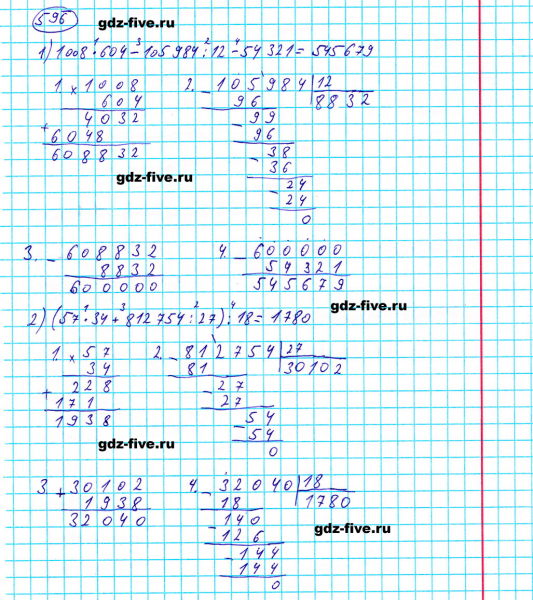 596
gdz-five.ru
1) 1008 · 604 − 105984 : 12 − 54321 = 545679
1. × 1008
604
4032
+ 6048
608832
gdz-five.ru
2. − 105984 | 12
96 8832
− 99
96
− 38
36
− 24
24
0
3. − 608832
8832
600000
4. − 600000
54321
545679
gdz-five.ru
2) (57 · 34 + 812754 : 27) : 18 = 1780
1. × 57
34
+ 228
171
1938
gdz-five.ru
2. − 812754 | 27
81 30102
− 27
27
− 54
54
0
3. + 30102
1938
32040
4. − 32040 | 18
18 1780
− 140
126
− 144
144
0
gdz-five.ru